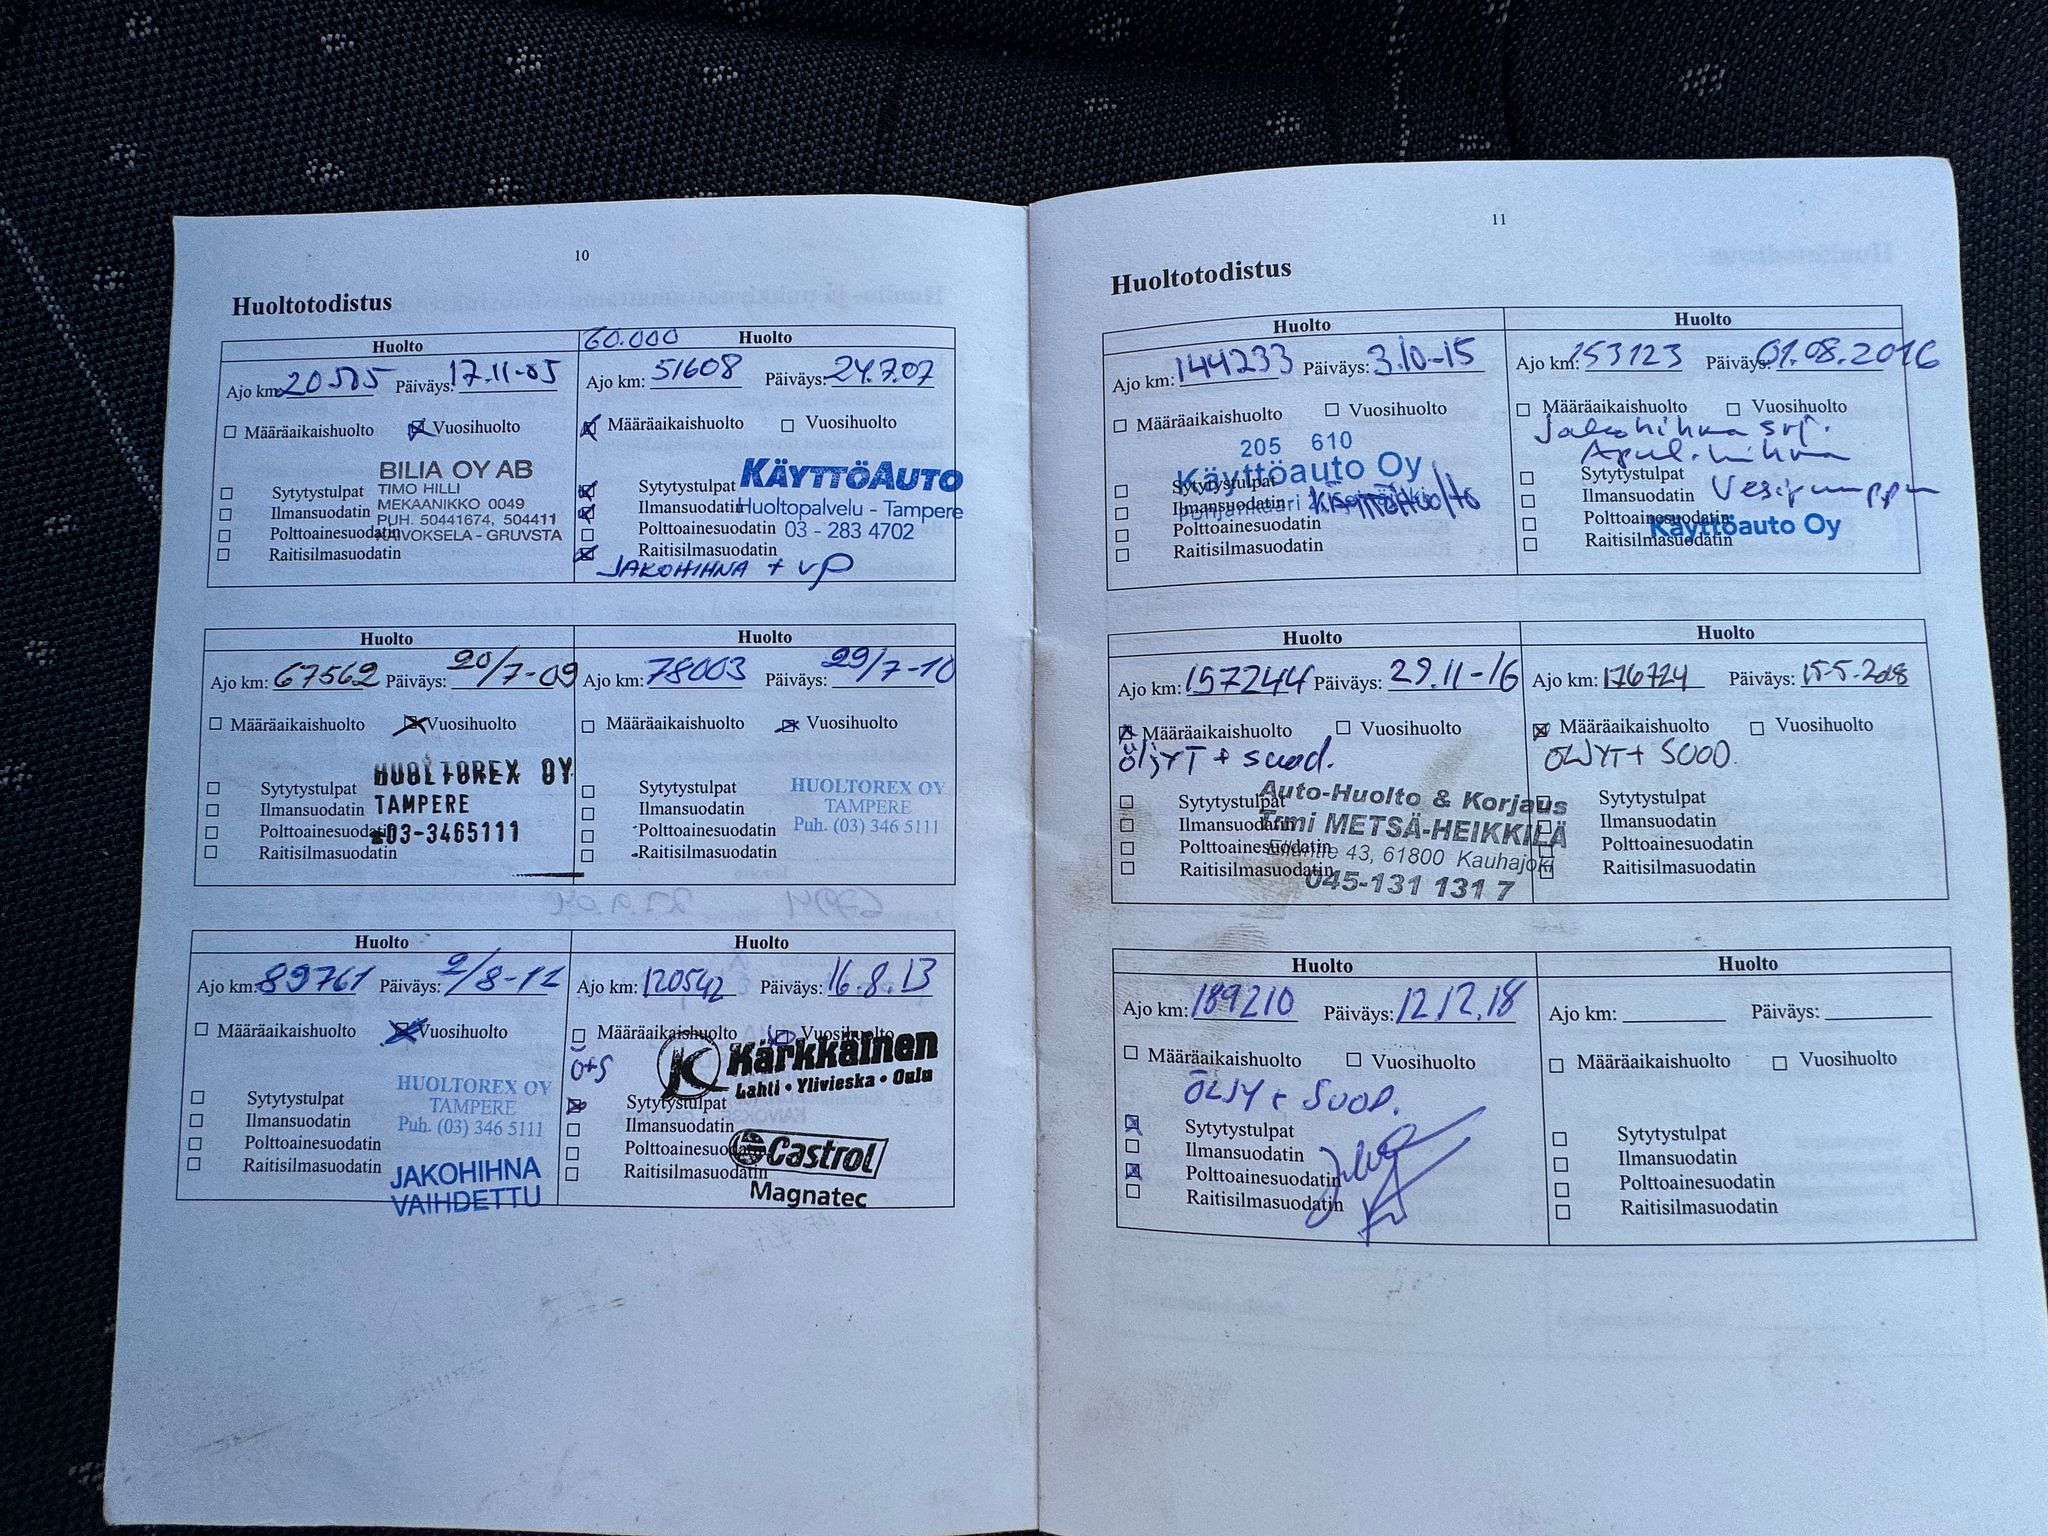 10
Huoltotodistus
Huolto
Ajo km: 20505 Päiväys: 17.11-05
Määräaikaishuolto Vuosihuolto
BILIA OY AB
TIMO HILLI
MEKAANIKKO 0049
PUH. 50441674, 504411
KAIVOKSELA - GRUVSTA
Sytytystulpat
Ilmansuodatin
Polttoainesuodatin
Raitisilmasuodatin
60.000 Huolto
Ajo km: 51608 Päiväys: 24.7.07
Määräaikaishuolto Vuosihuolto
KÄYTTÖAUTO
Huoltopalvelu - Tampere
03 - 283 4702
Sytytystulpat
Ilmansuodatin
Polttoainesuodatin
Raitisilmasuodatin
JAKOHIHNA + VP
Huolto
Ajo km: 67562 Päiväys: 20/7-09
Määräaikaishuolto Vuosihuolto
HUOLTOREX OY
TAMPERE
03-3465111
Sytytystulpat
Ilmansuodatin
Polttoainesuodatin
Raitisilmasuodatin
Huolto
Ajo km: 78003 Päiväys: 29/7-10
Määräaikaishuolto Vuosihuolto
HUOLTOREX OY
TAMPERE
Puh. (03) 346 5111
Sytytystulpat
Ilmansuodatin
Polttoainesuodatin
Raitisilmasuodatin
Huolto
Ajo km: 89761 Päiväys: 2/8-11
Määräaikaishuolto Vuosihuolto
HUOLTOREX OY
TAMPERE
Puh. (03) 346 5111
Sytytystulpat
Ilmansuodatin
Polttoainesuodatin
Raitisilmasuodatin
JAKOHIHNA
VAIHDETTU
Huolto
Ajo km: 120542 Päiväys: 16.8.13
Määräaikaishuolto Vuosihuolto
Ö+S
Kärkkäinen
Lahti • Ylivieska • Oulu
Sytytystulpat
Ilmansuodatin
Polttoainesuodatin
Raitisilmasuodatin
Castrol
Magnatec
11
Huoltotodistus
Huolto
Ajo km: 144233 Päiväys: 3.10-15
Määräaikaishuolto Vuosihuolto
205 610
Käyttöauto Oy
Sytytystulpat
Ilmansuodatin
Polttoainesuodatin
Raitisilmasuodatin
Huolto
Ajo km: 153123 Päiväys: 01.08.2016
Määräaikaishuolto Vuosihuolto
Jakohihna srj.
Apul.hihna
Vesipumppu
Sytytystulpat
Ilmansuodatin
Polttoainesuodatin
Raitisilmasuodatin
Käyttöauto Oy
Huolto
Ajo km: 157244 Päiväys: 29.11-16
Määräaikaishuolto Vuosihuolto
öljyT + suod.
Auto-Huolto & Korjaus
Tmi METSÄ-HEIKKILÄ
43, 61800 Kauhajoki
045-131 131 7
Sytytystulpat
Ilmansuodatin
Polttoainesuodatin
Raitisilmasuodatin
Huolto
Ajo km: 176724 Päiväys: 15-5-2018
Määräaikaishuolto Vuosihuolto
ÖLJYT + SUOD.
Sytytystulpat
Ilmansuodatin
Polttoainesuodatin
Raitisilmasuodatin
Huolto
Ajo km: 189210 Päiväys: 12.12.18
Määräaikaishuolto Vuosihuolto
ÖLJY + SUOD.
Sytytystulpat
Ilmansuodatin
Polttoainesuodatin
Raitisilmasuodatin
Huolto
Ajo km: Päiväys:
Määräaikaishuolto Vuosihuolto
Sytytystulpat
Ilmansuodatin
Polttoainesuodatin
Raitisilmasuodatin